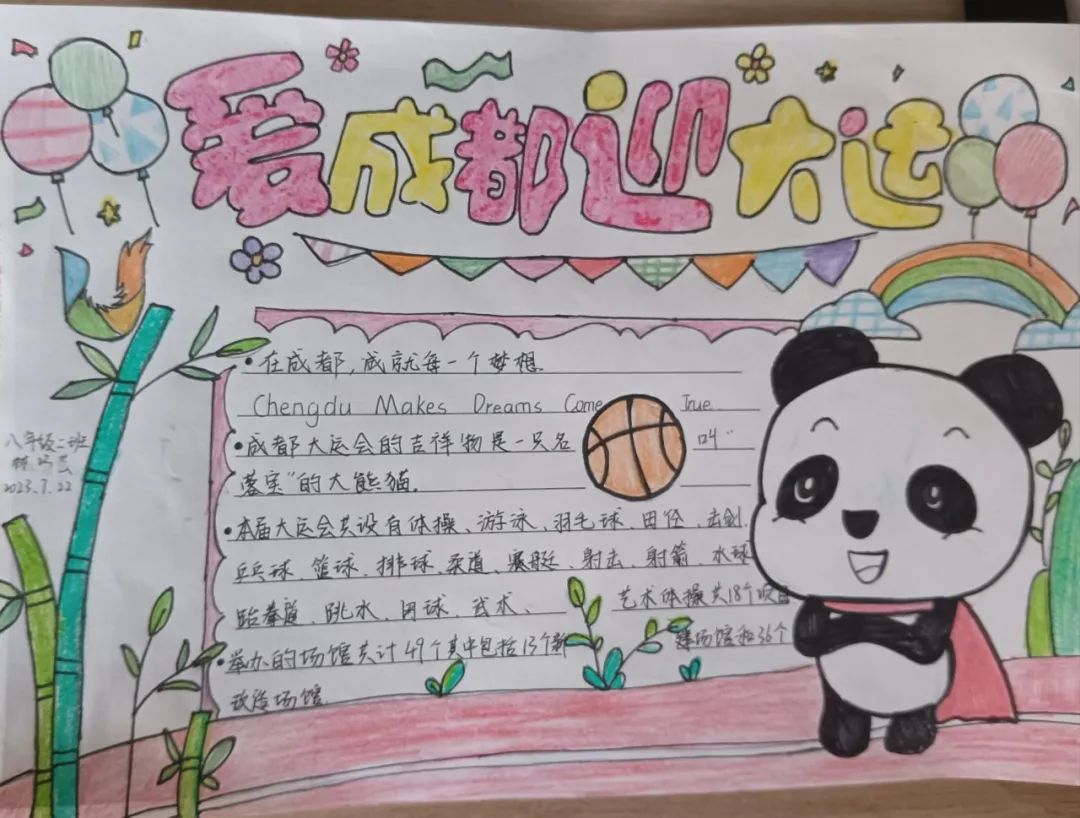 爱成都迎大运
•在成都，成就每一个梦想.
Chengdu Makes Dreams Come True.
•成都大运会的吉祥物是一只名叫“
蓉宝”的大熊猫.
•本届大运会共设有体操、游泳、羽毛球、田径、击剑、
乒乓球、篮球、排球、柔道、赛艇、射击、射箭、水球
跆拳道、跳水、网球、武术、艺术体操共18个项目
•举办的场馆共计49个其中包括13个新建场馆和36个
改造场馆.
八年级二班
林
2023.7.22